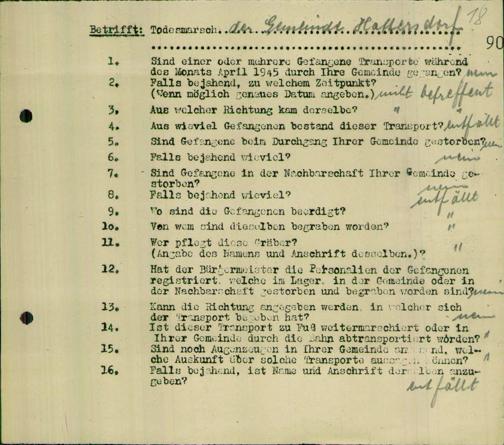 18
Betrifft: Todesmarsch. der Gemeinde Hattersdorf
90
1. Sind einer oder mehrere Gefangene Transporte während
des Monats April 1945 durch Ihre Gemeinde gegangen? nein
2. Falls bejahend, zu welchem Zeitpunkt?
(Wenn möglich genaues Datum angeben.) nicht betreffent
3. Aus welcher Richtung kam derselbe? "
4. Aus wieviel Gefangenen bestand dieser Transport? entfällt
5. Sind Gefangene beim Durchgang Ihrer Gemeinde gestorben? nein
6. Falls bejahend wieviel? nein
7. Sind Gefangene in der Nachbarschaft Ihrer Gemeinde ge-
storben? nein
8. Falls bejahend wieviel? entfällt
9. Wo sind die Gefangenen beerdigt? "
10. Von wem sind dieselben begraben worden? "
11. Wer pflegt diese Gräber? "
(Angabe des Namens und Anschrift desselben.)?
12. Hat der Bürgermeister die Personalien der Gefangenen
registriert, welche im Lager, in der Gemeinde oder in
der Nachbarschaft gestorben und begraben worden sind? nein
13. Kann die Richtung angegeben werden, in welcher sich
der Transport begeben hat? nein
14. Ist dieser Transport zu Fuß weitermarschiert oder in
Ihrer Gemeinde durch die Bahn abtransportiert wörden? "
15. Sind noch Augenzeugen in Ihrer Gemeinde anwesend, wel-
che Auskunft über solche Transporte aussagen können? "
16. Falls bejahend, ist Name und Anschrift derselben anzu-
geben? entfällt